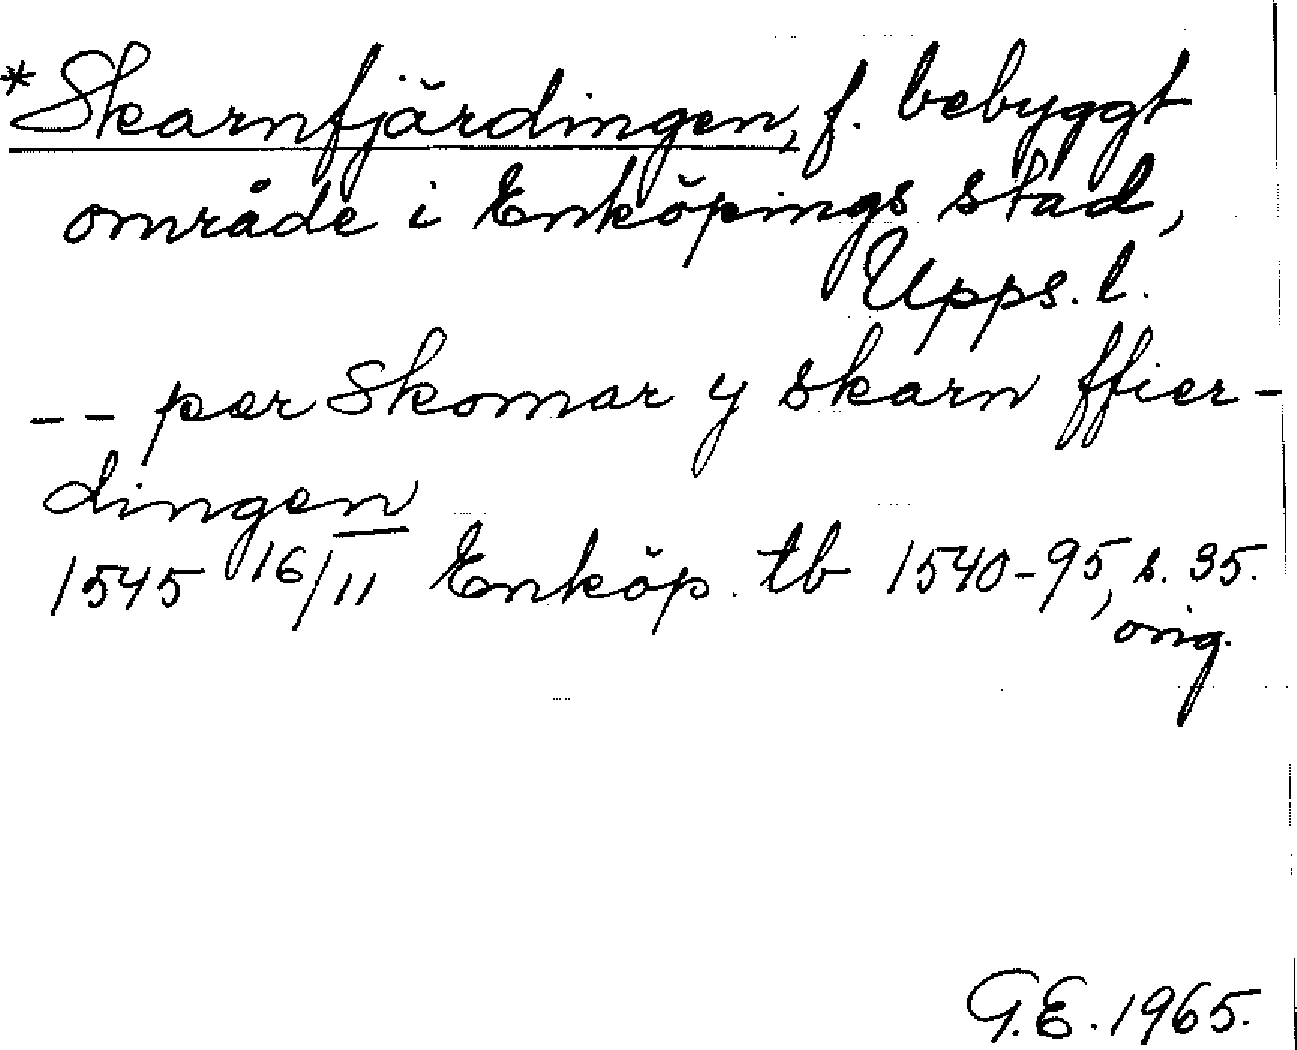 *Skarnfjärdingen, f. bebyggt
område i Enköpings stad,
Upps. l.
-- per Skomar y skarn ffier-
dingen
1545 16/11 Enköp. tb 1540-95, s. 35.
orig.
G.E. 1965.